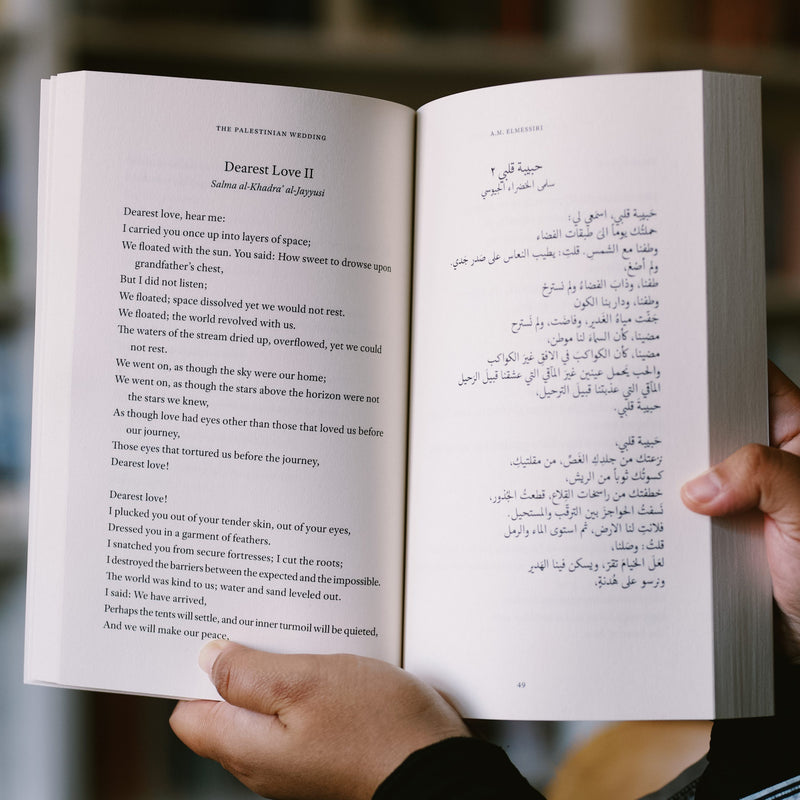 THE PALESTINIAN WEDDING
Dearest Love II
Salma al-Khadra' al-Jayyusi
Dearest love, hear me:
I carried you once up into layers of space;
We floated with the sun. You said: How sweet to drowse upon
grandfather's chest,
But I did not listen;
We floated; space dissolved yet we would not rest.
We floated; the world revolved with us.
The waters of the stream dried up, overflowed, yet we could
not rest.
We went on, as though the sky were our home;
We went on, as though the stars above the horizon were not
the stars we knew,
As though love had eyes other than those that loved us before
our journey,
Those eyes that tortured us before the journey,
Dearest love!
Dearest love!
I plucked you out of your tender skin, out of your eyes,
Dressed you in a garment of feathers.
I snatched you from secure fortresses; I cut the roots;
I destroyed the barriers between the expected and the impossible.
The world was kind to us; water and sand leveled out.
I said: We have arrived,
Perhaps the tents will settle, and our inner turmoil will be quieted,
And we will make our peace,
A.M. ELMESSIRI
حبيبة قلبي ٢
سلمى الخضراء الجيوسي
حبيبة قلبي، اسمعي لي:
حملتُك يوماً الى طبقات الفضاء
وطفنا مع الشمس. قلتِ: يطيب النعاس على صدر جَدي.
ولم أصْغِ،
طفنا، وذابَ الفضاءُ ولم نسترحْ
وطفنا، ودار بنا الكون
جَفّت مياهُ الغَدير، وفاضت، ولم نَسترح
مضينا، كأن السماءَ لنا موطن،
مضينا، كأن الكواكبَ في الافق غيرَ الكواكب
والحب يحمل عينين غيرَ المآقي التي عشقتنا قبيلَ الرحيل
المآقي التي عذّبتنا قبيلَ الترحيل،
حبيبةَ قلبي.
حَبيبة قلبي،
نزعتك من جلدِكِ الغَضّ، من مقلتيكِ،
كسوتُك ثوباً من الريش،
خطفتك من راسخات القِلاع، قطعتُ الجُذور،
نَسفتُ الحواجزَ بين الترقّب والمستحيل.
فلانتِ لنا الارضُ، ثم استوى الماء والرمل
قلتُ: وصَلنا،
لعَلّ الخيامَ تقرّ، ويسكن فينا الهَدير
ونرسو على هُدنةٍ،
49